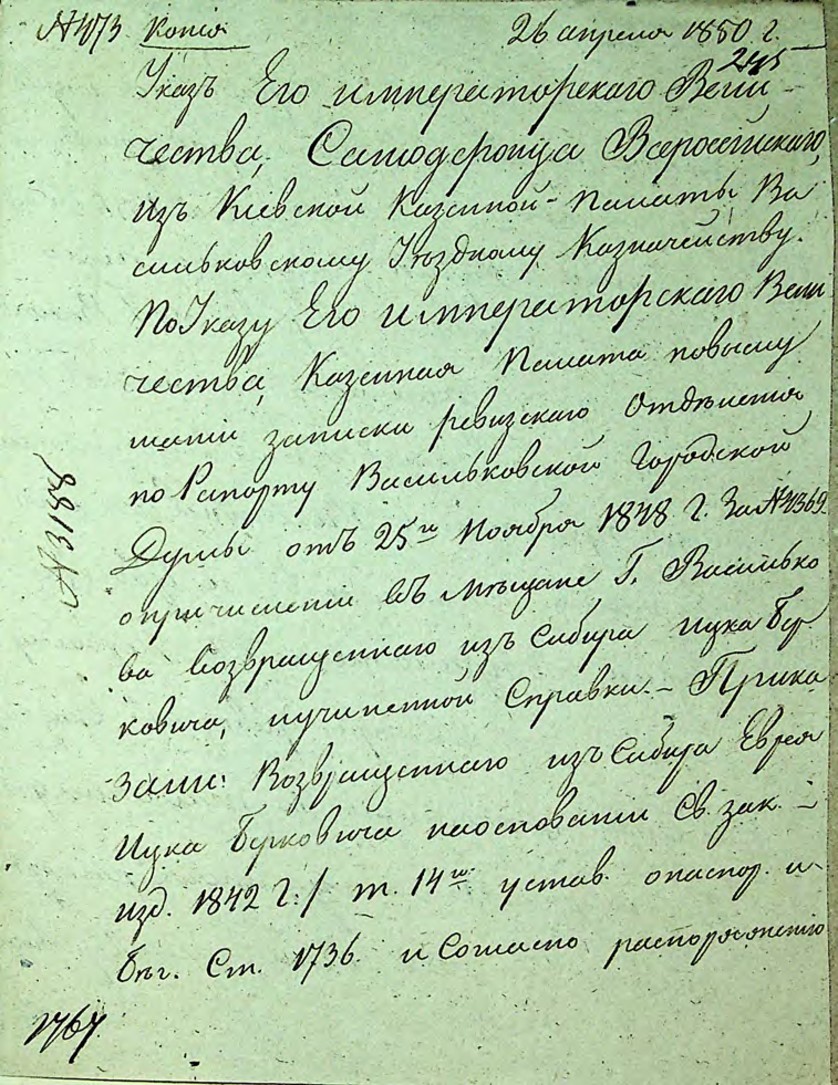 № 1173 Копія 26 апреля 1850 г.
245
Указъ Его императорскаго Вели-
чества, Самодержца Всероссійскаго,
изъ Кіевской Казенной-Палаты Ва
сильковскому Уѣздному Казначейству.
По Указу Его императорскаго Вели
чества, Казенная Палата повыслу
шаніи записки ревизскаго Отдѣленія
по Рапорту Васильковской Городской
Думы отъ 25го Ноября 1848 г. За №4369
опричисленіи въ мѣщане Г. Василько
ва возвращеннаго изъ Сибири Ицка Бер
ковича, иучиненной Справки.- Прика
зали: Возвращеннаго изъ Сибири Еврея
Ицка Берковича наоснованіи Св. зак. -
изд. 1842 г./ т. 14го устав. опаспор. и
бѣг. Ст. 1736. и Согласно распоряженію
№ 3188
1767